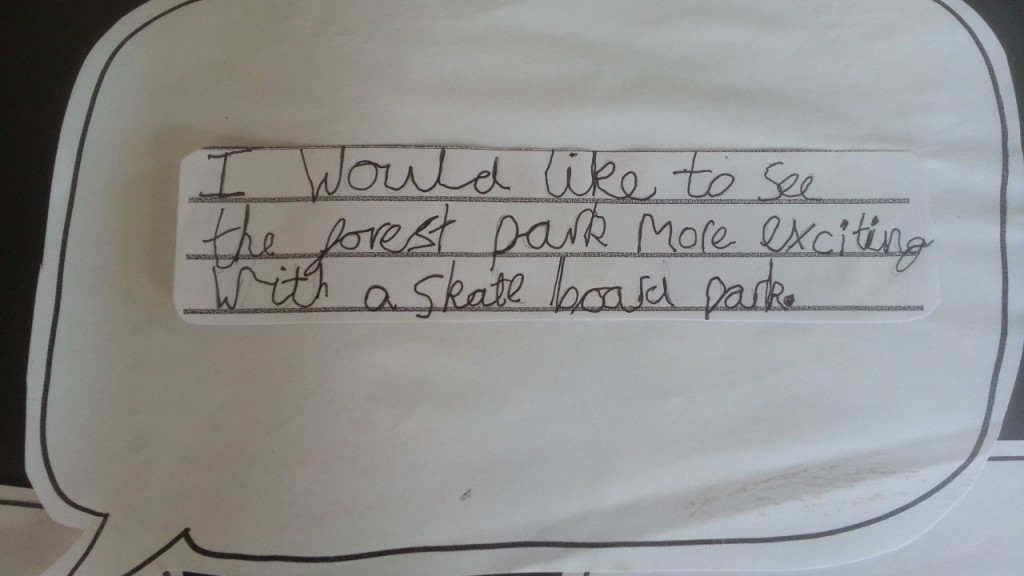 I Would like to see
the forest park More exciting
With a skate board park.